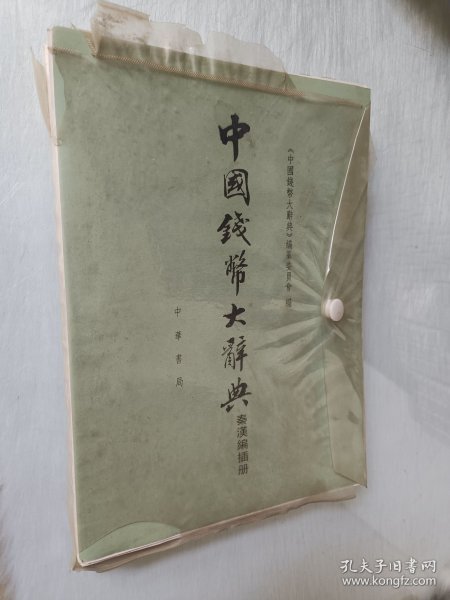 《中國錢幣大辭典》編纂委員會 編
中國錢幣大辭典
秦漢編插册
中華書局
孔夫子旧书网
www.kongfz.com